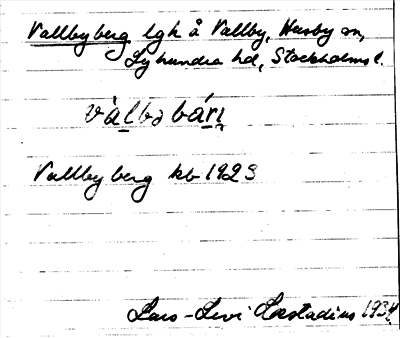 Vallbyberg lgh å Vallby, Husby sn,
Lyhundra hd, Stockholms l.
Vallbyberg kb 1923
Lars-Levi Læstadius 1934